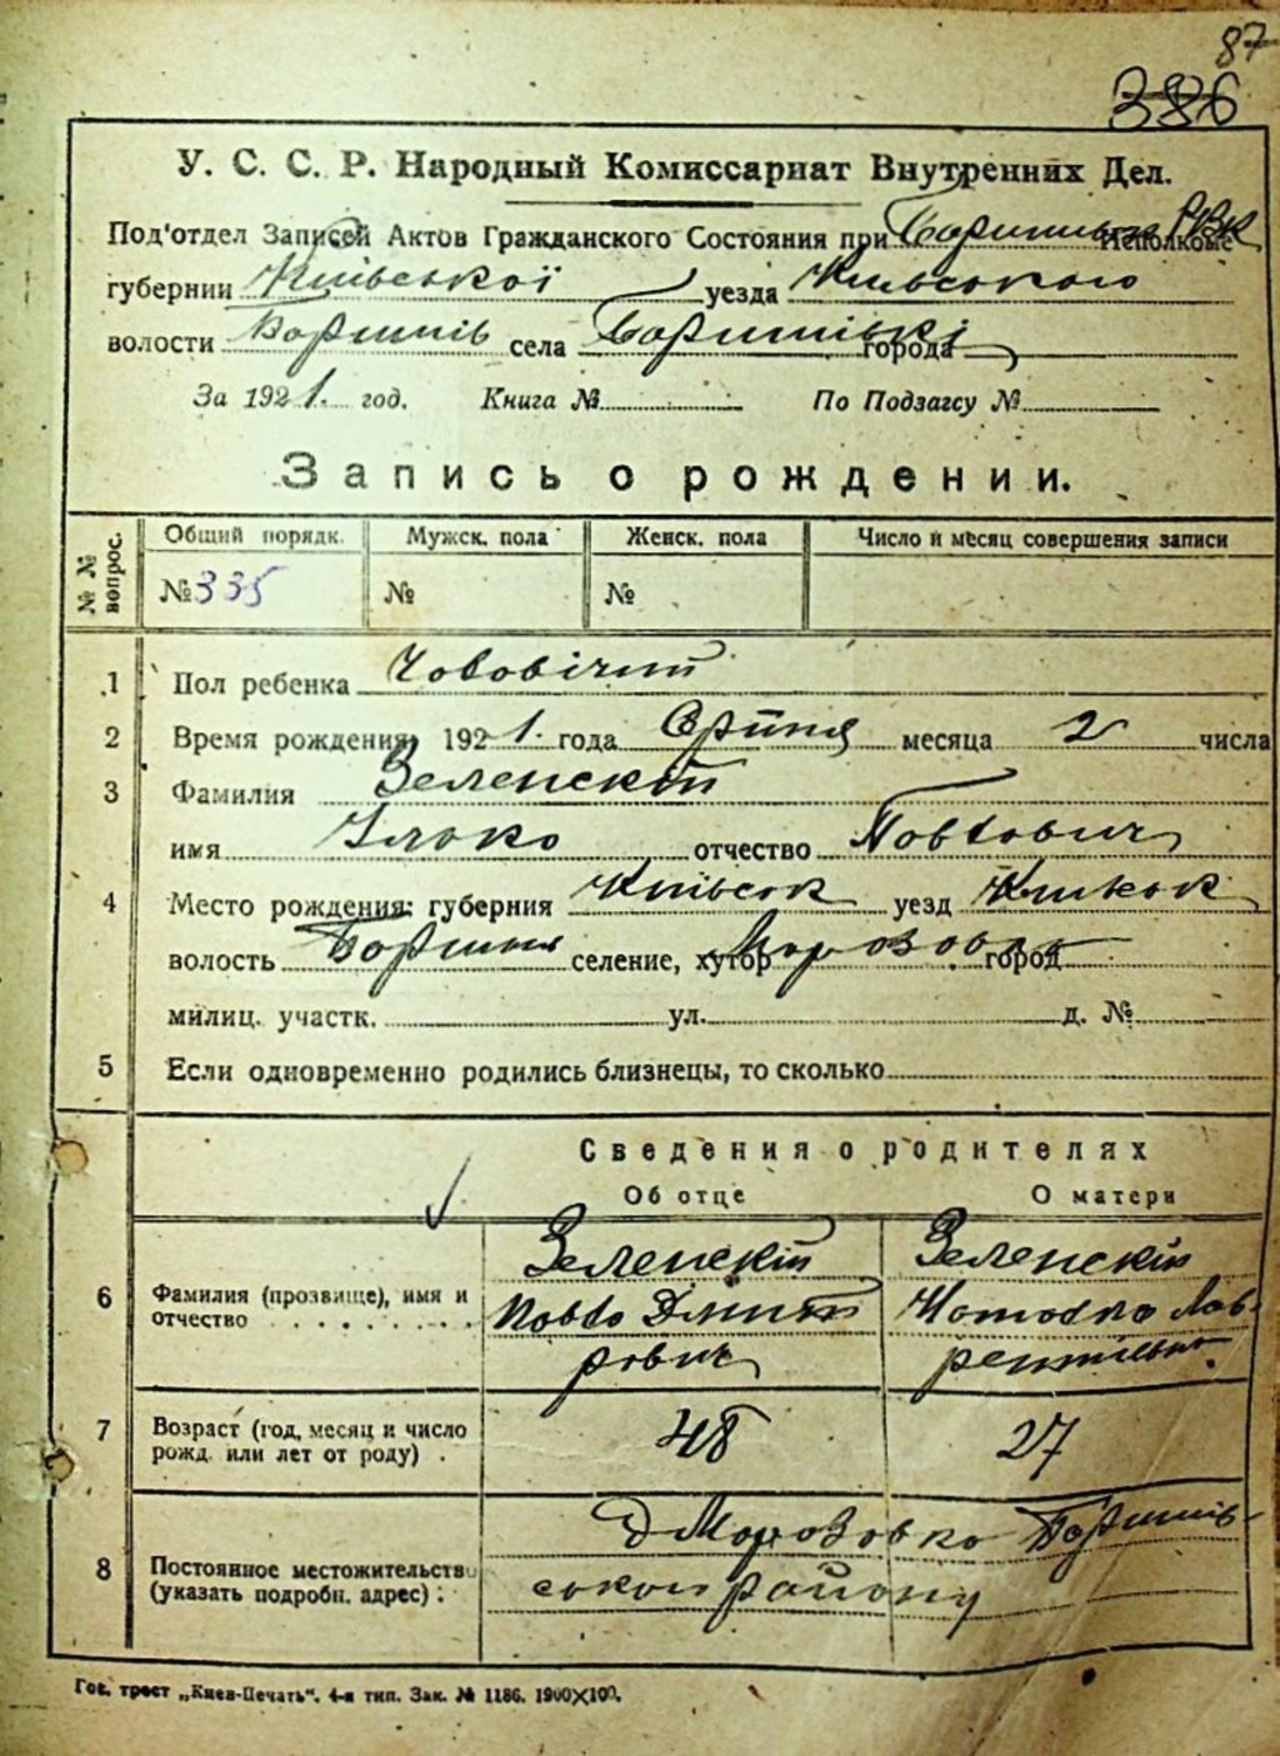 87
386
У. С. С. Р. Народный Комиссариат Внутренних Дел.
Под'отдел Записей Актов Гражданского Состояния при Исполкоме РВК
губернии Київської уезда Київського
волости Баришів села Баришівкі города
За 1921. год. Книга № По Подзагсу №
Запись о рождении.
№ № вопрос. Общий порядк. Мужск. пола Женск. пола Число и месяц совершения записи
№ 335 № №
1 Пол ребенка Чоловічий
2 Время рождения: 1921. года Серпня месяца 2 числа
3 Фамилия Зеленский
имя отчество Павлович
4 Место рождения: губерния Київськ уезд Київськ
волость селение, хутор Морозовка город
милиц. участк. ул. д. №
5 Если одновременно родились близнецы, то сколько
Сведения о родителях
Об отце О матери
6 Фамилия (прозвище), имя и отчество Зеленский Зеленский
Павло Дмит Наталка Лав-
рович рентіевна.
7 Возраст (год, месяц и число рожд. или лет от роду) 48 27
8 Постоянное местожительство (указать подробн. адрес): Морозовка Баришів-
ського району
Гос. трест „Киев-Печать“. 4-я тип. Зак. № 1186. 1900X100.